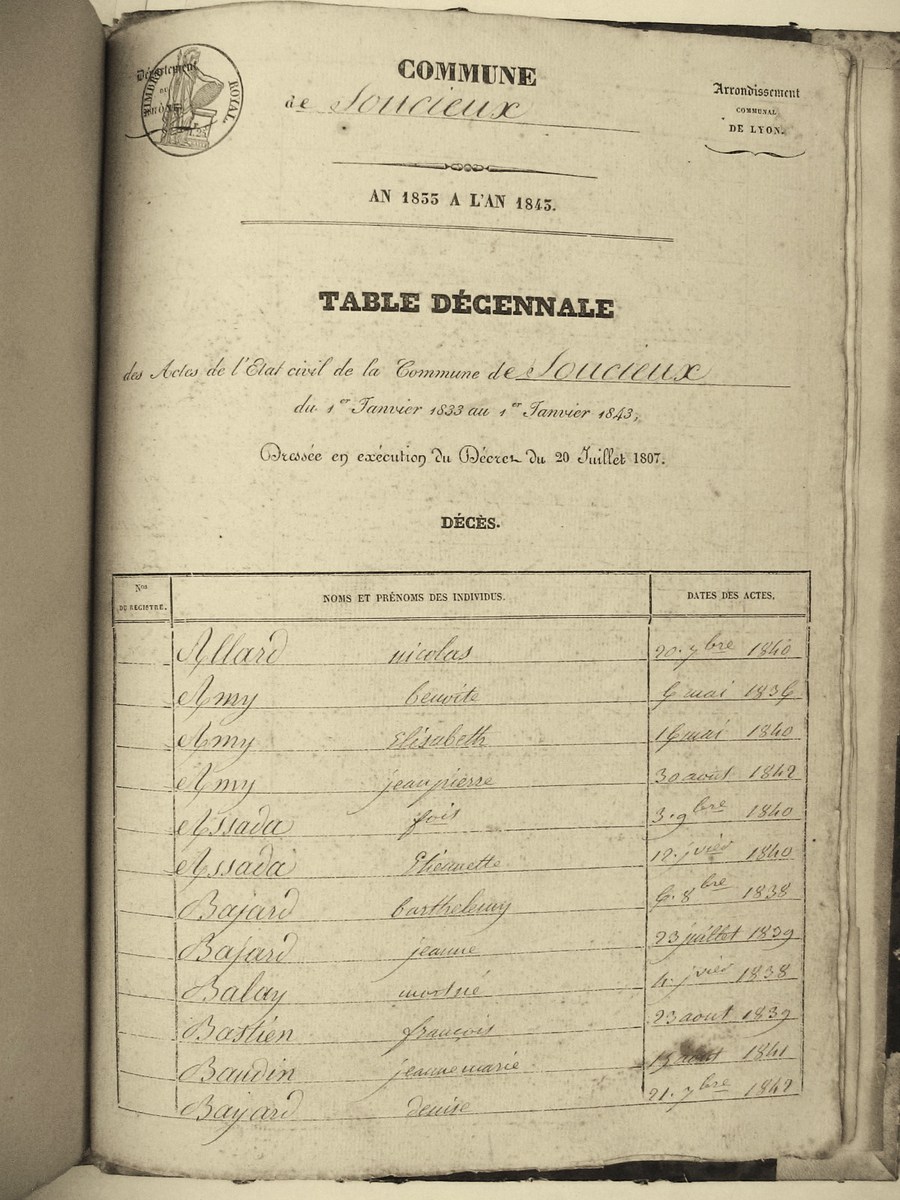 Département
DU
RHÔNE.
TIMBRE ROYAL.
COMMUNE
de Soucieux
Arrondissement
COMMUNAL
DE LYON.
AN 1833 A L'AN 1843.
TABLE DÉCENNALE
des Actes de l'Etat civil de la Commune de Soucieux
du 1er Janvier 1833 au 1er Janvier 1843,
Dressée en exécution du Décret du 20 Juillet 1807.
DÉCÈS.
Nos DU REGISTRE. NOMS ET PRÉNOMS DES INDIVIDUS. DATES DES ACTES.
Allard nicolas 20. 7bre 1840
Amy benoite 6 mai 1836
Amy Elisabeth 16 mai 1840
Amy jean pierre 30 août 1842
Assada fois 3. 9bre 1840
Assada Etiennette 12. jvier 1840
Bajard barthelemy 6. 8bre 1838
Bajard jeanne 23 juillet 1839
Balay mort né 4. jvier 1838
Bastien françois 23 aout 1839
Baudin jeanne marie août 1841
Bayard denise 21. 7bre 1842